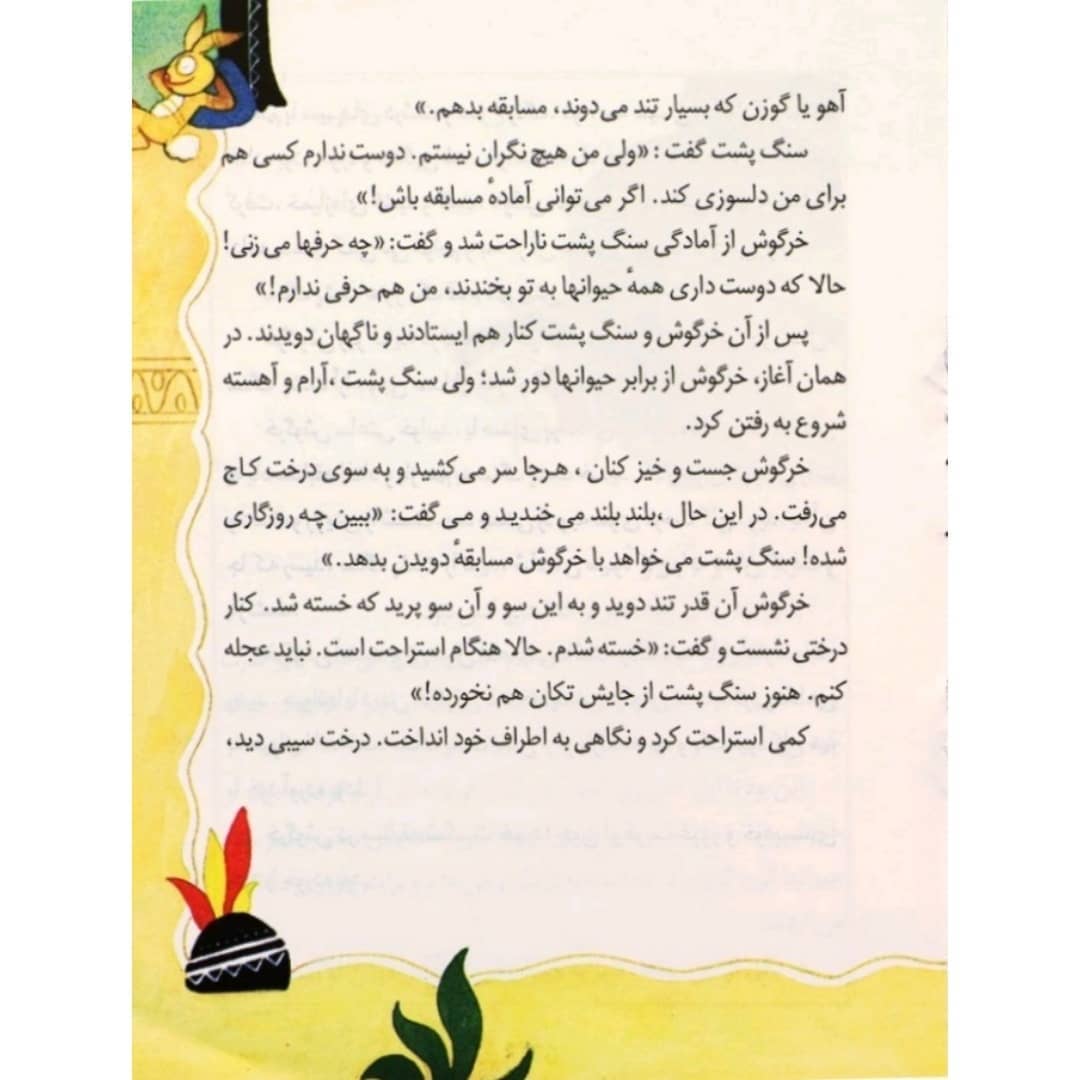 آهو یا گوزن که بسیار تند می‌دوند، مسابقه بدهم.»
سنگ پشت گفت: «ولی من هیچ نگران نیستم. دوست ندارم کسی هم
برای من دلسوزی کند. اگر می‌توانی آمادهٔ مسابقه باش!»
خرگوش از آمادگی سنگ پشت ناراحت شد و گفت: «چه حرفها می زنی!
حالا که دوست داری همهٔ حیوانها به تو بخندند، من هم حرفی ندارم!»
پس از آن خرگوش و سنگ پشت کنار هم ایستادند و ناگهان دویدند. در
همان آغاز، خرگوش از برابر حیوانها دور شد؛ ولی سنگ پشت ،آرام و آهسته
شروع به رفتن کرد.
خرگوش جست و خیز کنان ، هرجا سر می‌کشید و به سوی درخت کاج
می‌رفت. در این حال ،بلند بلند می‌خندید و می‌گفت: «ببین چه روزگاری
شده! سنگ پشت می‌خواهد با خرگوش مسابقهٔ دویدن بدهد.»
خرگوش آن قدر تند دوید و به این سو و آن سو پرید که خسته شد. کنار
درختی نشست و گفت: «خسته شدم. حالا هنگام استراحت است. نباید عجله
کنم. هنوز سنگ پشت از جایش تکان هم نخورده!»
کمی استراحت کرد و نگاهی به اطراف خود انداخت. درخت سیبی دید،